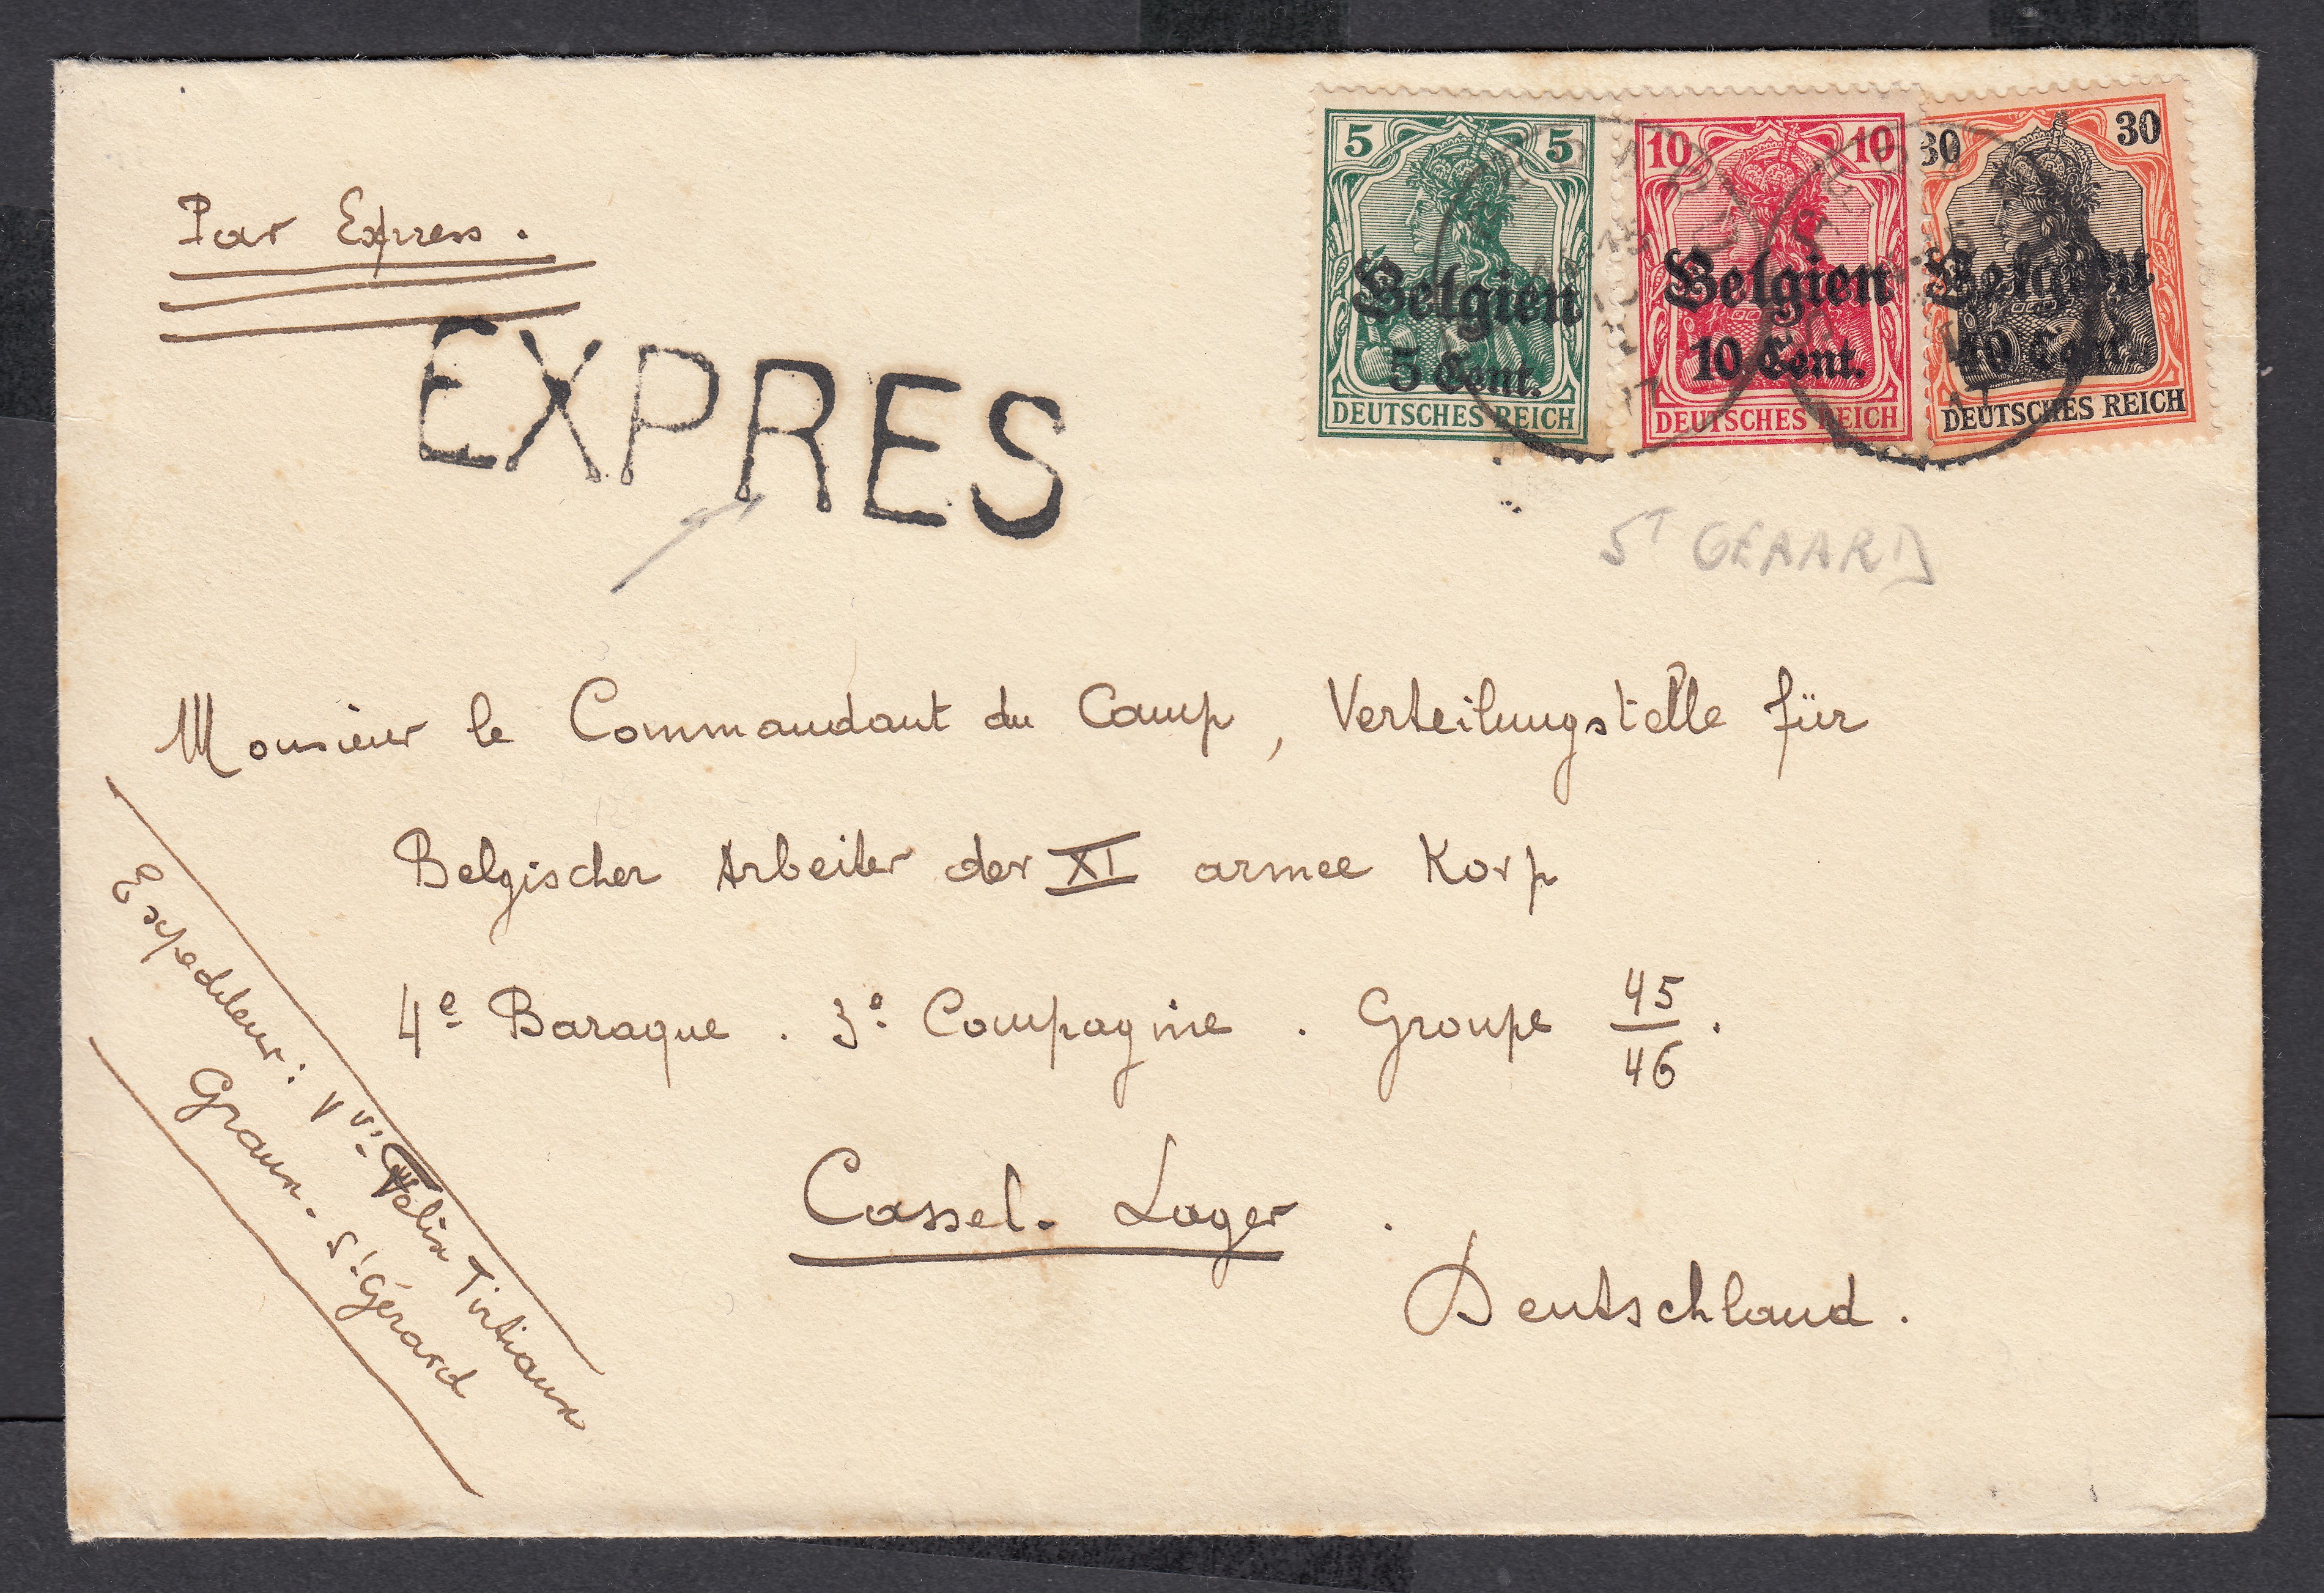 Par Express.
EXPRES
5 5
Belgien
5 Cent.
DEUTSCHES REICH
10 10
Belgien
10 Cent.
DEUTSCHES REICH
30 30
Belgien
40 Cent.
DEUTSCHES REICH
ST GERARD
Monsieur le Commandant du Camp, Verteilungstelle für
Belgischer Arbeiter der XI armee Korp
4e Baraque . 3e Compagnie . Groupe 45/46.
Cassel. Lager .
Deutschland.
Expediteur: Vve Félix Tintiaux
Graux. St Gérard